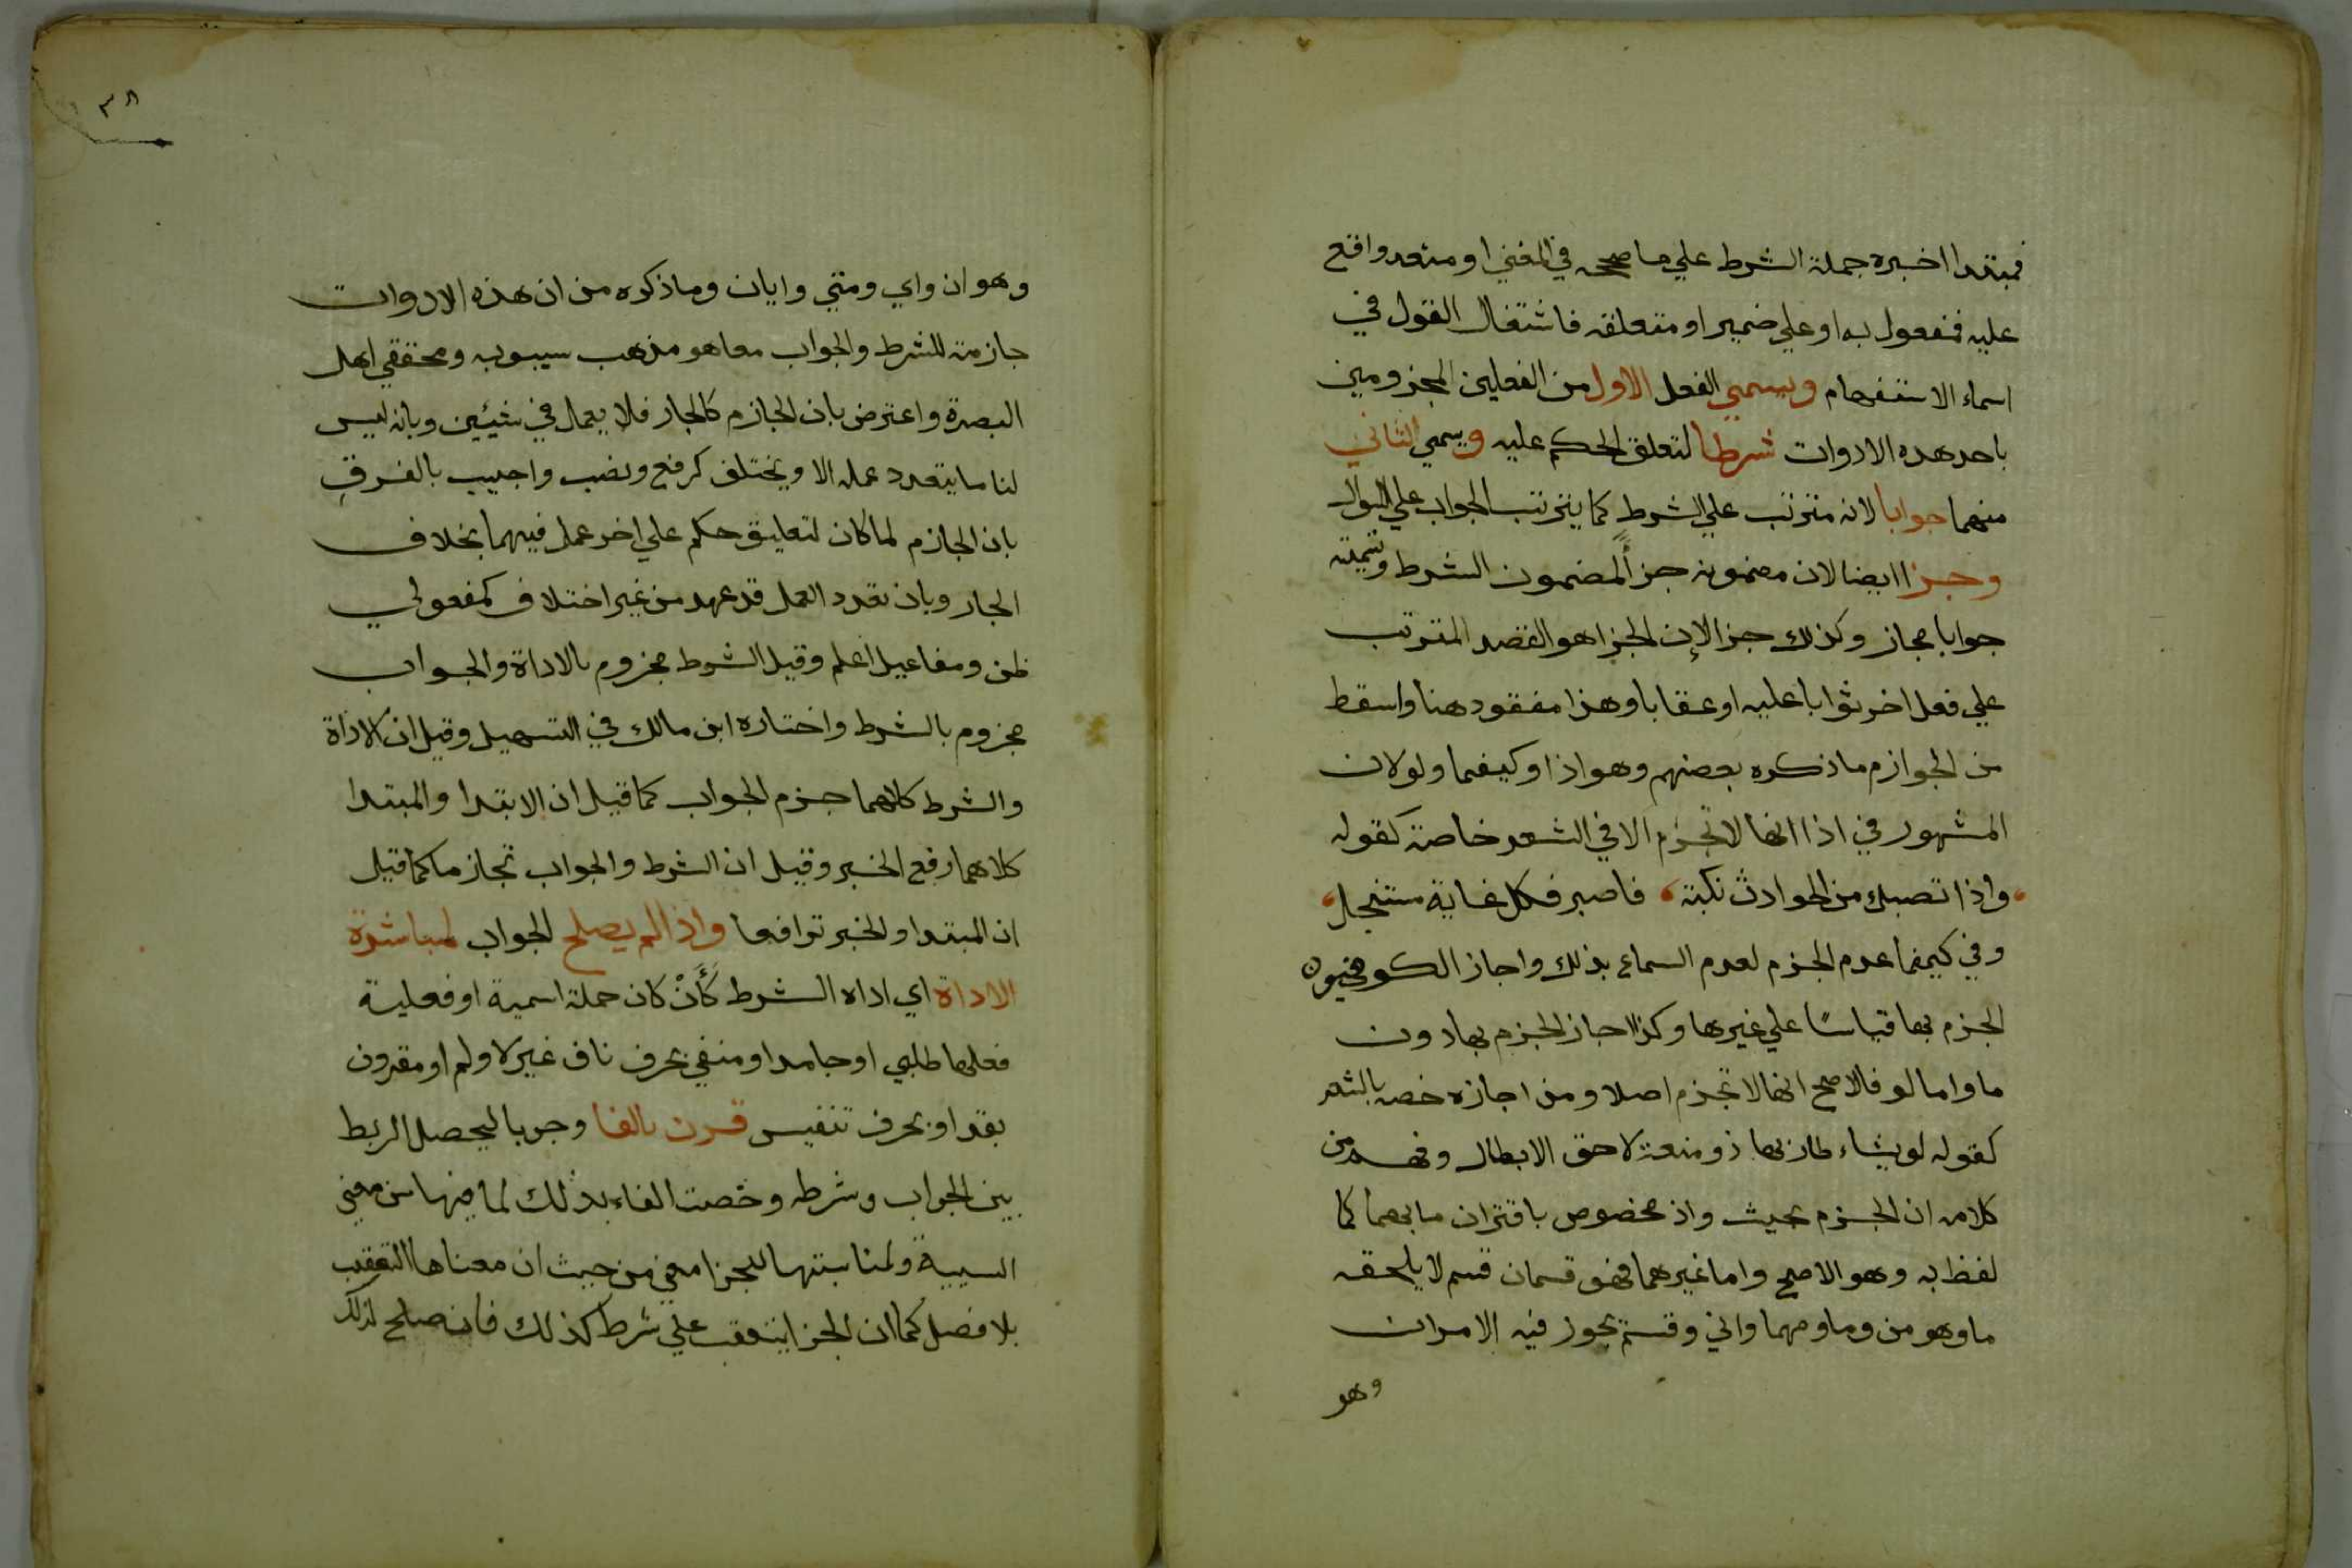 فمبتدا اخبره جملة الشرط علي ما صححه في المغني او متعد واقع
عليه فمفعول به او علي ضميره او متعلقه فاشتغال القول في
اسماء الاستفهام ويسمي الفعل الاول من الفعلين المجزومين
باحد هذه الادوات شرطا لتعلق الحكم عليه ويسمي الثاني
منهما جوابا لانه مترتب علي الشرط كما يترتب الجواب علي السوال
وجزا ايضا لان مضمونه جزأ لمضمون الشرط وتسميته
جوابا مجاز وكذلك جزا لان الجزا هو القصد المترتب
علي فعل اخر ثوابا عليه او عقابا وهذا مفقود هنا واسقط
من الجوازم ما ذكره بعضهم وهو اذا وكيفما ولو لان
المشهور في اذا انها لا تجزم الا في الشعر خاصة كقوله
واذا تصبك من الحوادث نكبة فاصبر فكل غاية ستنجلي
وفي كيفما عدم الجزم لعدم السماع بذلك واجاز الكوفيون
الجزم بها قياسًا علي غيرها وكذا اجاز الجزم بها دون
ما واما لو فالاصح انها لا تجزم اصلا ومن اجازه خصه بالشعر
كقوله لو يشاء طار بها ذو منعة لاحق الابطال وفهم من
كلامه ان الجزم بحيث واذ مخصوص باقتران ما بهما كما
لفظ به وهو الاصح واما غيرهما فهو قسمان قسم لا يلحقه
ما وهو من وما ومهما واني وقسم يجوز فيه الامران
وهو
٣٨
وهو ان واي ومتي وايان وما ذكره من ان هذه الادوات
جازمة للشرط والجواب معا هو مذهب سيبويه ومحققي اهل
البصرة واعترض بان الجازم كالجار فلا يعمل في شيئين وبانه ليس
لنا ما يتعدد عمله الا ويختلف كرفع ونصب واجيب بالفرق
بان الجازم لما كان لتعليق حكم علي اخر عمل فيهما بخلاف
الجار وبان تعدد العمل قد عهد من غير اختلاف كمفعولي
ظن ومفاعيل اعلم وقيل الشرط مجزوم بالاداة والجواب
مجزوم بالشرط واختاره ابن مالك في التسهيل وقيل ان الاداة
والشرط كلاهما جزم الجواب كما قيل ان الابتدا والمبتدا
كلاهما رفع الخبر وقيل ان الشرط والجواب تجازما كما قيل
ان المبتدا والخبر ترافعا واذا لم يصلح الجواب لمباشرة
الاداة اي اداه الشرط كأَنْ كان جملة اسمية او فعلية
فعلها طلبي او جامد او منفي بحرف ناف غير لا ولم او مقرون
بقد او بحرف تنفيس قرن بالفا وجوبا ليحصل الربط
بين الجواب وشرطه وخصت الفاء بذلك لما فيها من معني
السببية ولمناسبتها للجزا معني من حيث ان معناها التعقيب
بلا فصل كما ان الجزا يتعقب علي شرط كذلك فانه صلح لذلك